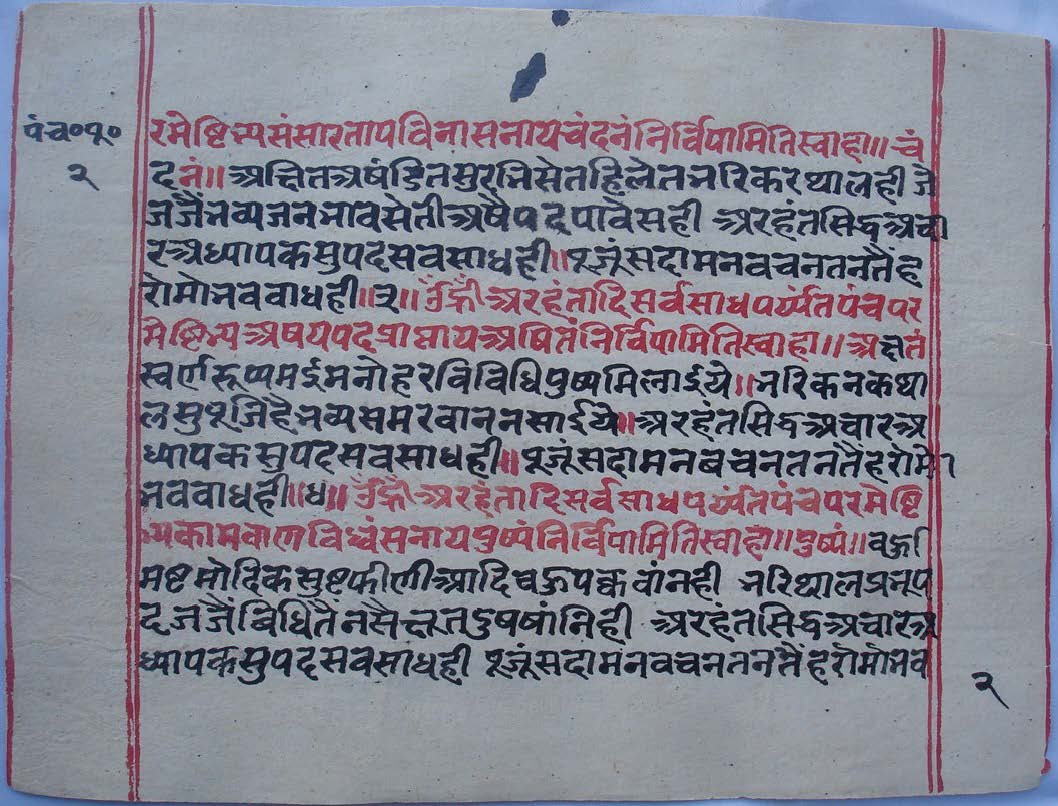 पंच०पू०
२
रमेष्टिभ्यसंसारतापविनासनायचंदनंनिर्विपामितिस्वाहा॥ चं
दनं॥ अक्षितअषंडितसुरभिसेतहिलेतभरिकरथालही जै
जजैंभव्यजनभावसेतीअषैपदपावैंसही अरहंतसिद्धअचा
रअध्यापकसुपदसवसाधही॥ पूजूंसदामनवचनतनतैंह
रोमोभववाधही॥३॥ ॐह्रींअरहंतादिसर्वसाधपर्य्यंतपंचपर
मेष्टिभ्यअषयपदप्राप्तायअषितंनिर्विपामितिस्वाहा॥ अक्षतं
स्वर्णरूप्यमईमनोहरविविधिपुष्पमिलाईये॥ भरिकनकथा
लसुपूजिहैभव्यसमरवाननसाईये॥ अरहंतसिद्धअचारअ
ध्यापकसुपदसवसाधही॥ पूजूंसदामनबचनतनतैंहरोमो
भववाधही॥४॥ ॐह्रींअरहंतादिसर्वसाधपर्य्यंतपंचपरमेष्टि
भ्यकामवाणविध्वंसनायपुष्पंनिर्विपामितिस्वाहा॥ पुष्पं॥ वऊ
मिष्टमोदिकसुष्टफीणीआदिवऊपक्कवांनही भरिथालप्रभूप
दजजैंविधितैंनसैक्षुतदुषषांनिही अरहंतसिद्धअचारअ
ध्यापकसुपदसवसाधही पूजूंसदामनवचनतनतैंहरोमोभव
२